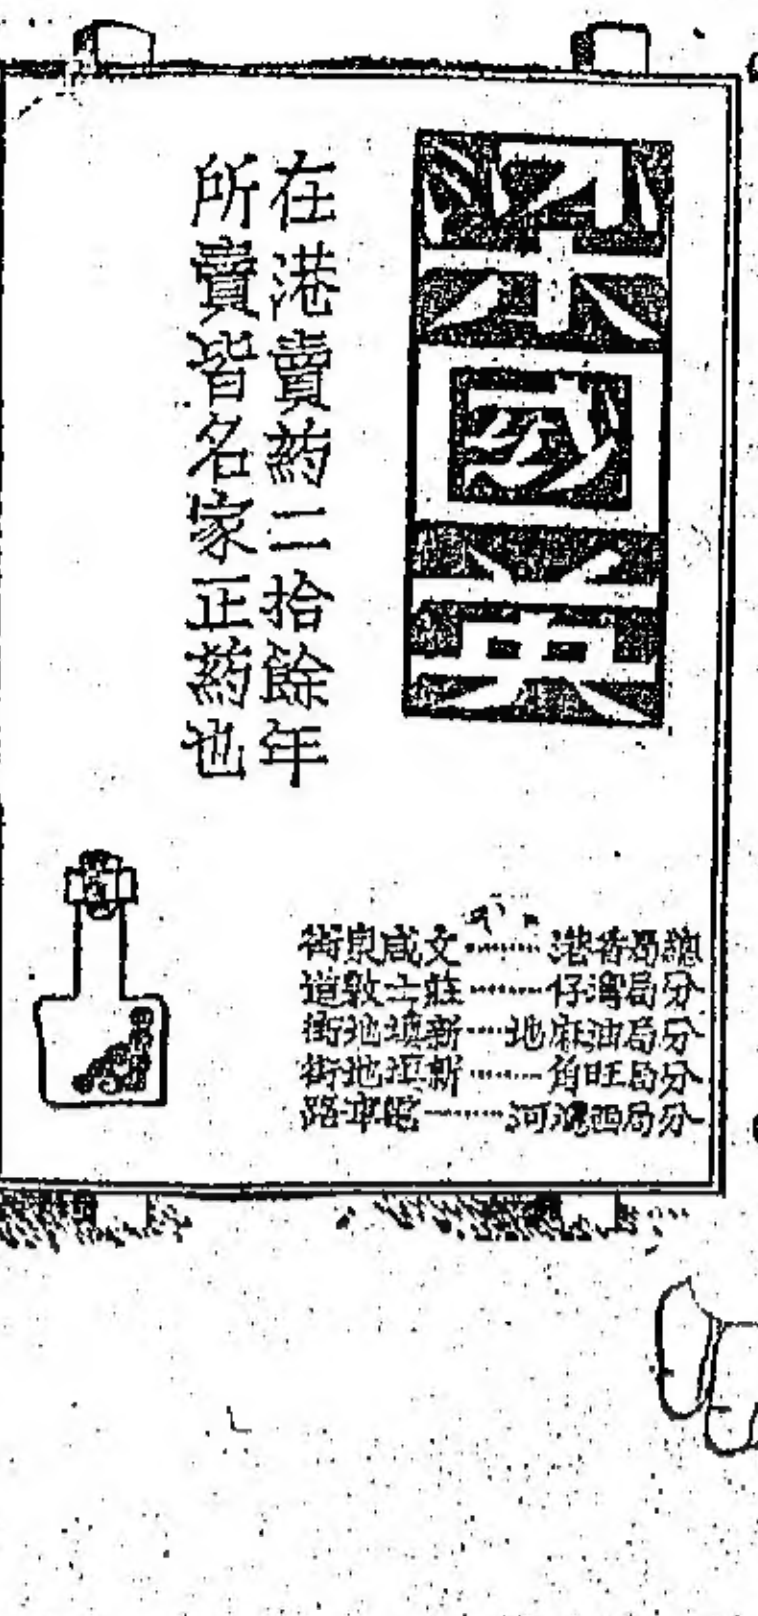 梁國英
在港賣葯二拾餘年
所賣皆名家正葯也
總局香港……文咸東街
分局灣仔……莊士敦道
分局油麻地……新填地街
分局旺角……新填地街
分局西灣河……電車路